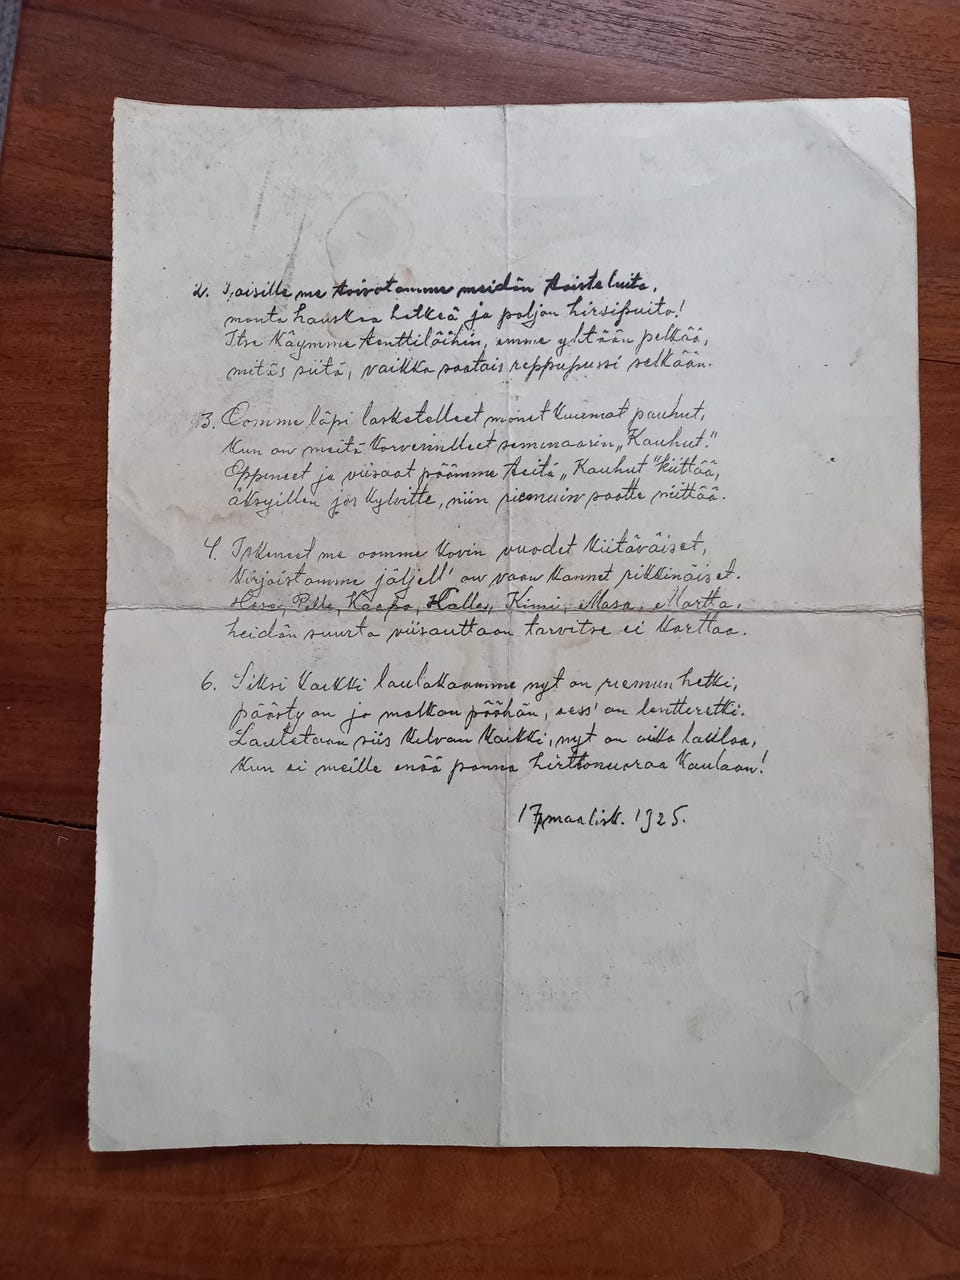 2. Toisille me toivotamme meidän taisteluita,
monta hauskaa hetkeä ja paljon hirsipuita!
Itse käymme tenttilöihin, emme yhtään pelkää,
mitäs siitä, vaikka saatais reppupussi selkään.
3. Oomme läpi lasketelleet monet kuumat pauhut,
kun on meitä korvennelleet seminaarin „Kauhut."
Oppineet ja viisaat päämme teitä „Kauhut" kiittää,
äksyillen jos kylvitte, niin riemuin saatte niittää.
4. Iskeneet me oomme kovin vuodet kiitäväiset,
kirjoistamme jäljell' on vaan kannet rikkinäiset.
Pelle, Kaapo, Kalle, Kimi, Masa, Martta,
heidän suurta viisauttaan tarvitse ei karttaa.
6. Siksi kaikki laulakaamme nyt on riemun hetki,
päästy on jo matkan päähän, eess' on lentteretki.
Lauletaan siis kelvan kaikki, nyt on aika laulaa,
kun ei meille enää panna hirttonuoraa kaulaan!
17 maalisk. 1925.